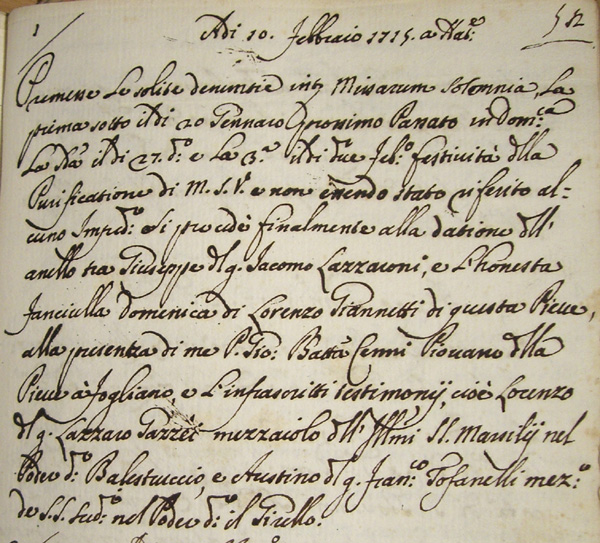 1 Adi 10. Febbraio 1715. a Nat.e 52
Premesse Le solite denuntie intr Missarum solemnia, La
prima sotto il di 20 Gennaro prossimo Passato in dom.ca
La 2da il di 27. d.o e La 3.a il di due Feb.o festività della
Purificatione di M. S. V.e e non essendo stato riferito al-
cuno Imped.to si procedè finalmente alla datione dell'
anello tra Giuseppe del q. Iacomo Lazzaroni, e L'honesta
fanciulla Domenica di Lorenzo Giannetti di questa Pieve,
alla presenza di me P. Gio: Batta Cenni Piovano della
Pieve à Fogliano, e L'infrascritti testimonij, cioè Lorenzo
del q. Lazzaro mezzaiolo dell' Illmi SS. Marsilij nel
Poder d.o Balestruccio, e Austino del q. Fran.co Tofanelli mez.o
de S.S. sud.i nel Poder d.o il Girello.